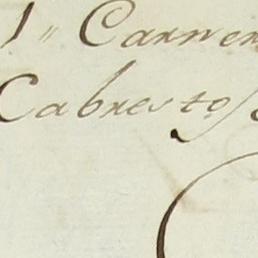 1 " Carner
Cabresto